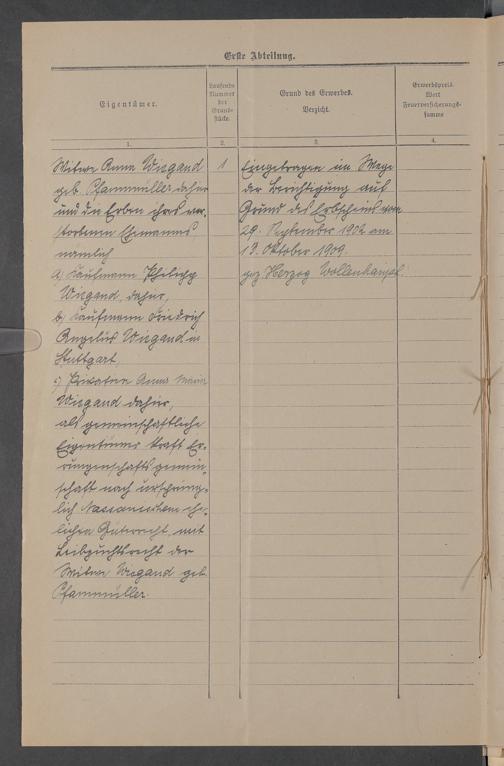 Erste Abteilung.
Eigentümer.
Laufende
Nummer
der
Grund-
stücke.
Grund des Erwerbes.
Verzicht.
Erwerbspreis.
Wert
Feuerversicherungs-
summe
1.
2.
3.
4.
Witwe Anna Wiegand
geb. Pfannmüller daher
und die Erben ihres ver-
storbenen Ehemannes
nämlich
a) Kaufmann Philipp
Wiegand, daher,
b) Kaufmann Friedrich
Angelus Wiegand in
Stuttgart,
c) Privatin Anna Maria
Wiegand daher,
als gemeinschaftliche
Eigentümer kraft Er-
rungenschaftsgemein-
schaft nach ursprüng-
lich Nassauischem ehe-
lichen Güterrecht, mit
Leibzuchtsrecht der
Witwe Wiegand geb.
Pfannmüller.
1
Eingetragen im Wege
der Berichtigung auf
Grund des Erbscheins vom
29. September 1902 am
13. Oktober 1909.
gez. Herzog Wollenhaupt